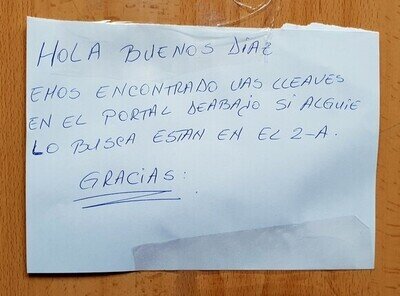 HOLA BUENOS DÍAZ
EMOS ENCONTRADO UAS LLEAVES
EN EL PORTAL DEABAJO SI ALGUIE
LO BUSCA ESTAN EN EL 2-A.
GRACIAS: